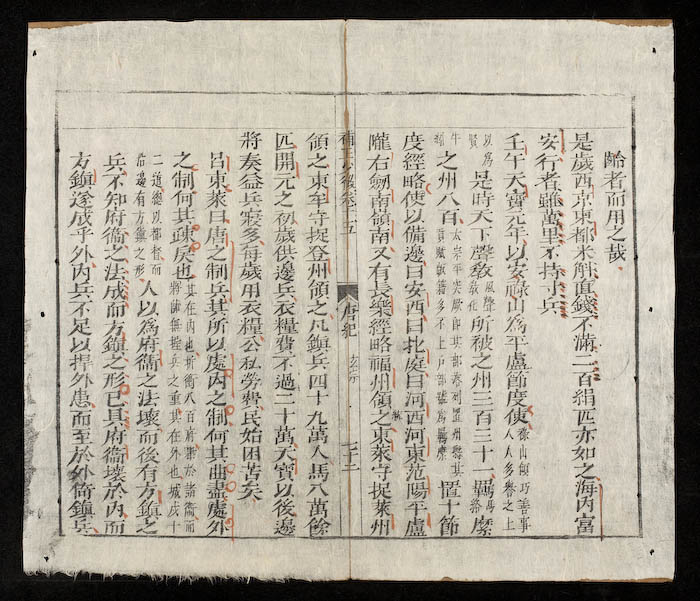 齡者而用之哉
是歲西京東都米斛直錢不滿二百絹匹亦如之海內富
安行者雖萬里不持寸兵
壬午天寶元年以安祿山為平盧節度使祿山傾巧善事人人多譽之上
以為賢是時天下聲敎風聲敎化所被之州三百三十一羈馬絡縻
牛之州八百太宗平突厥即其部落列置州縣其貢賦版籍多不上戶部號為羈縻置十節
度經略使以備邊曰安西曰北庭曰河西河東范陽平盧
隴右劒南嶺南又有長樂經略福州領之東萊守捉萊州
唐紀
領之東牟守捉登州領之凡鎭兵四十九萬人馬八萬餘
匹開元之初歲供邊兵衣糧費不過二十萬天寶以後邊
將奏益兵寖多每歲用衣糧公私勞費民始困苦矣
呂東萊曰唐之制兵其所以處內之制何其曲盡處外
之制何其疎戾也其在內也折衝八百府於諸衛而將帥無握兵之重其在外也城戍十
二道總以都督而沿邊有方鎭之形人以為府衛之法壞而後有方鎭之
兵不知府衛之法成而方鎭之形已具府衛壞於內而
方鎭遂成乎外內兵不足以捍外患而至於外衛鎭兵